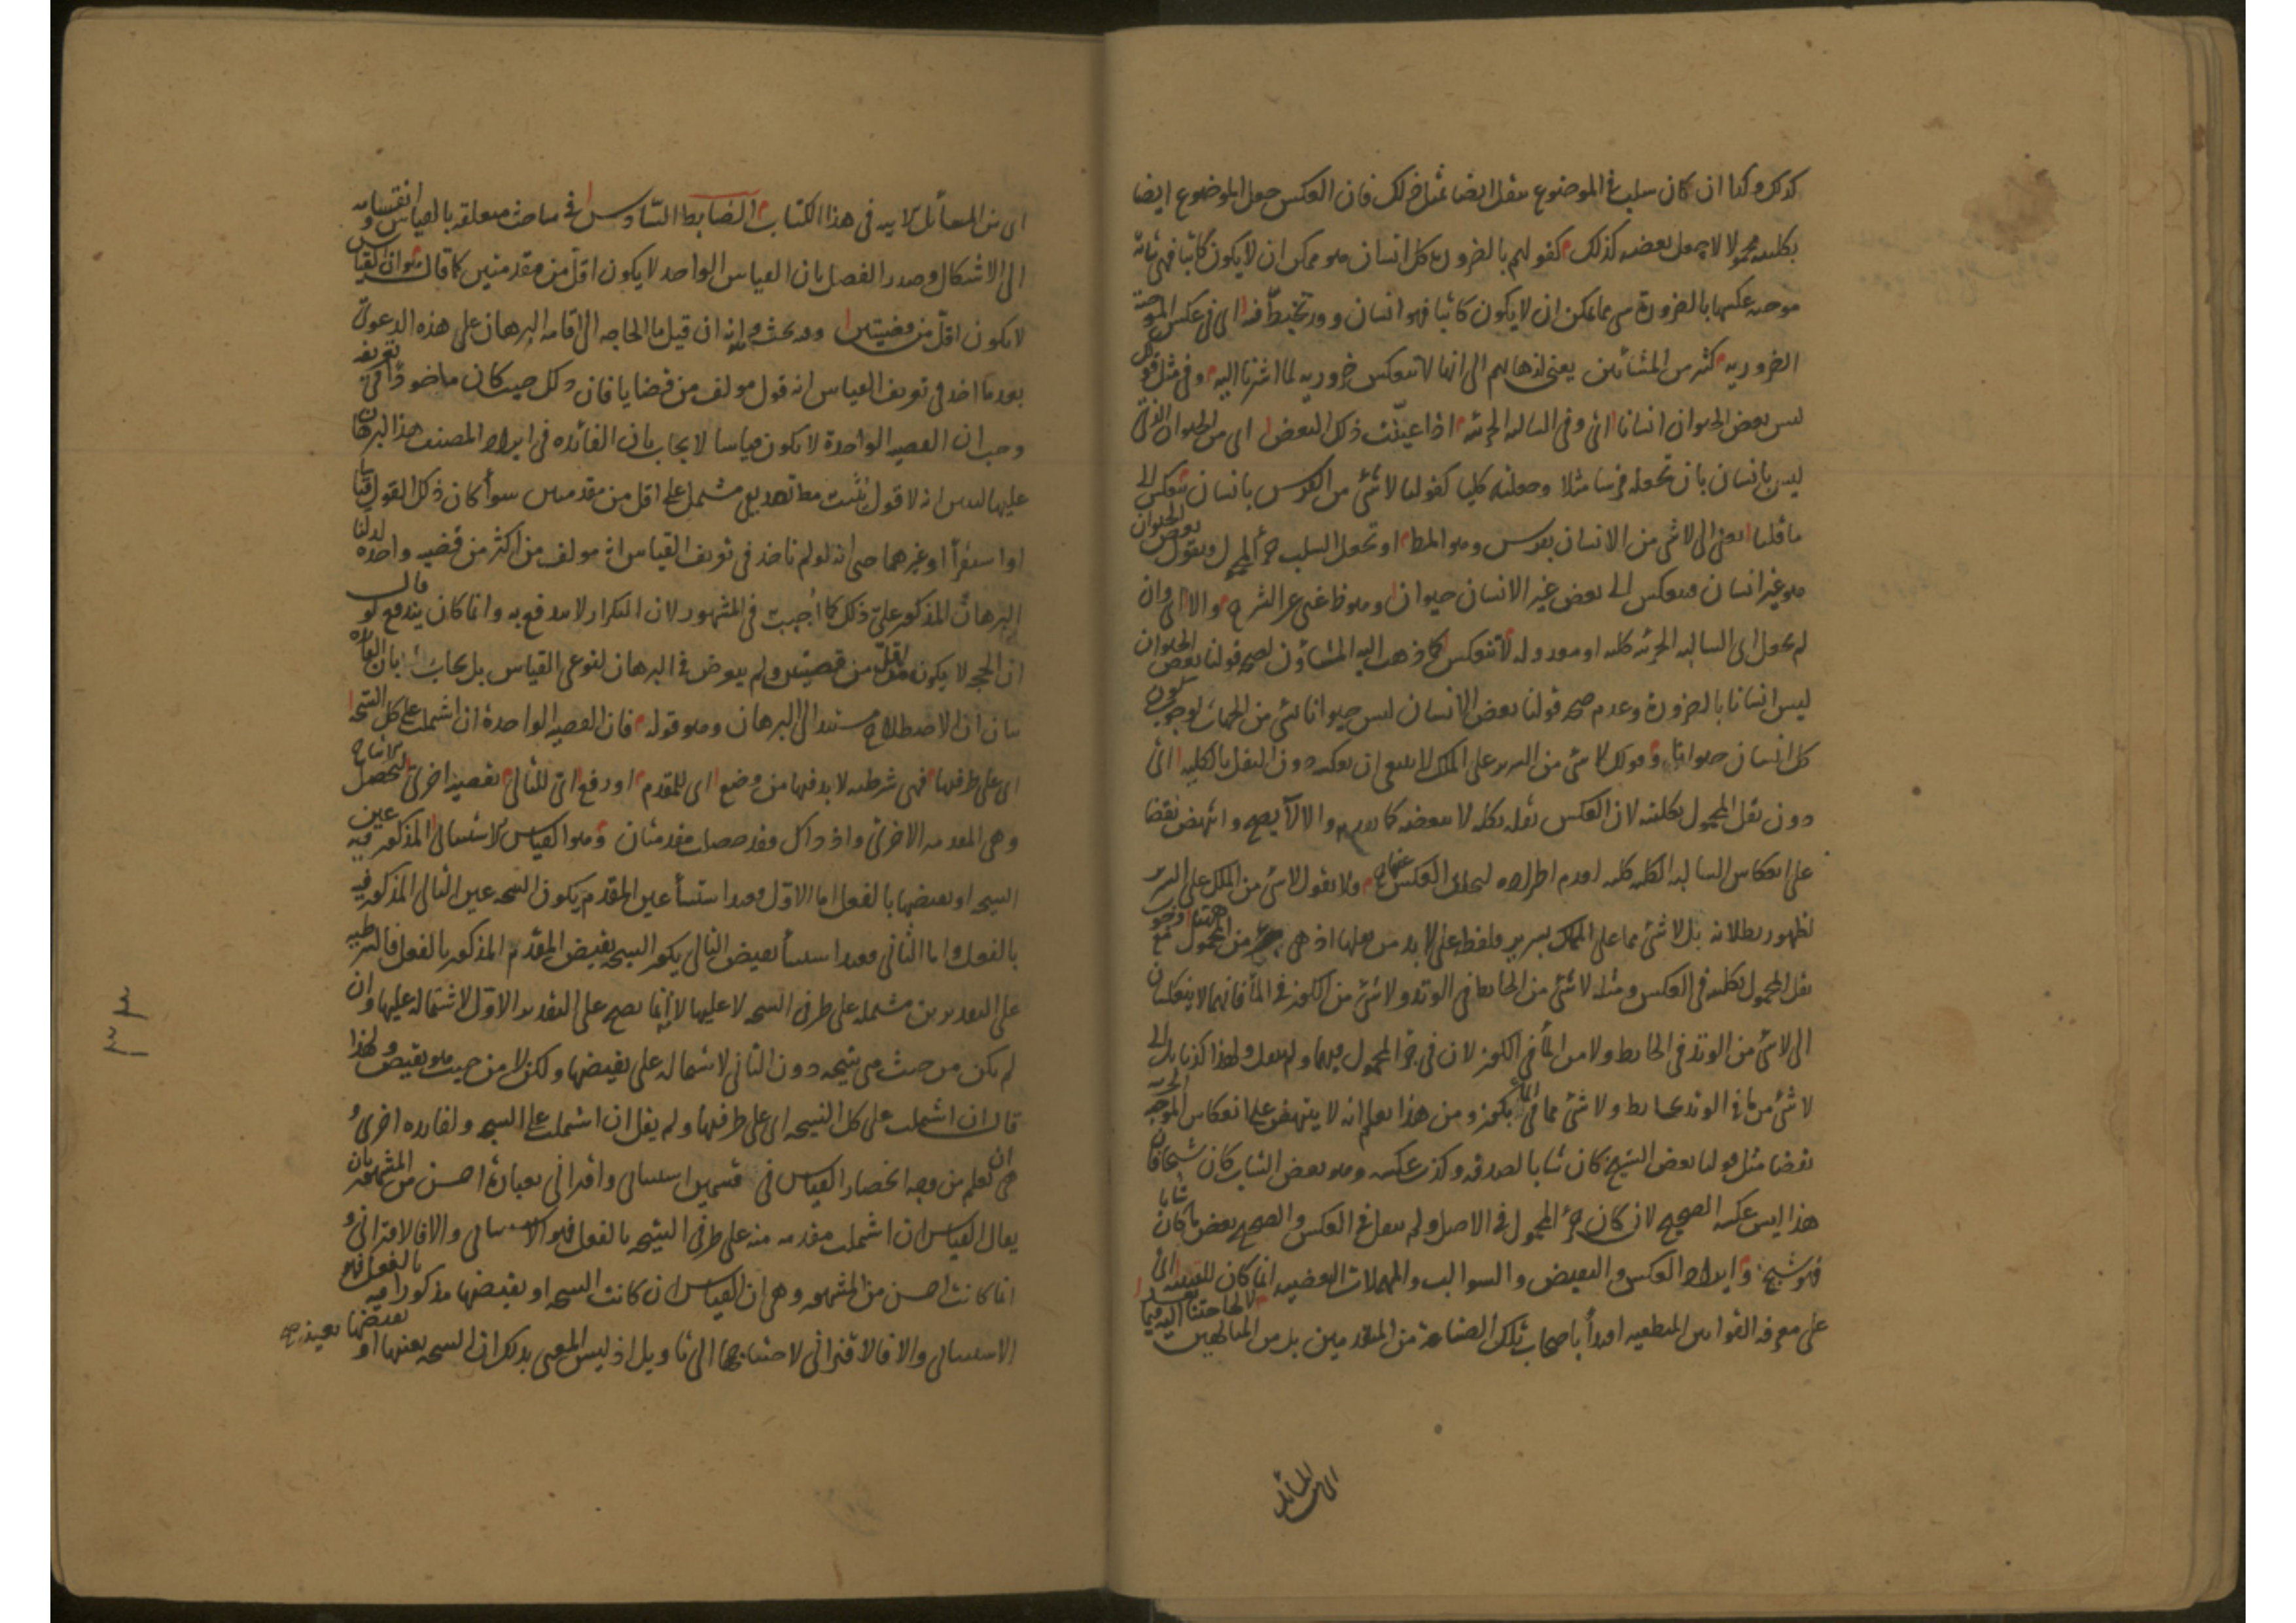 كذلك وكذا ان كان سلب في الموضوع ينقل ايضا مثل ذلك فان العكس جعل الموضوع ايضا
بكليته محمولا لا جعل بعضه كذلك كقولهم بالضرورة كل انسان هو ممكن ان لا يكون كاتبا فهي بتاتة
موجبة عكسها بالضرورة شيء مما يمكن ان لا يكون كاتبا فهو انسان وقد تخبط فيه اي في عكس الموجبة
الضرورية كثير من المشائين يعني لذهابهم الى انها لا تنعكس ضرورية لما اشرنا اليه وفي مثل قول
ليس بعض الحيوان انسانا اي وفي السالبة الجزئية اذا عينت ذلك البعض اي من الحيوان الذي
ليس بانسان بان تجعله فرسا مثلا وجعلته كليا كقولنا لا شئ من الفرس بانسان تنعكس الى
ما قلنا اعني الى لا شئ من الانسان بفرس وهو المط او تجعل السلب جزأ المحمول ويقول بعض الحيوان
هو غير انسان فينعكس الى بعض غير الانسان حيوان وهو ظ غني عن الشرح والا اي وان
لم يجعل اي السالبة الجزئية كلية او معدولة لا تنعكس كما ذهب اليه المشاؤن لصحة قولنا بعض الحيوان
ليس انسانا بالضرورة وعدم صحة قولنا بعض الانسان ليس حيوانا بشئ من الجهات لوجوب كون
كل انسان حيوانا وقولك لا شئ من السرير على الملك لا ينبغي ان يعكس دون النقل بالكلية اي
دون نقل المحمول بكليته لان العكس نقله بكله لا ببعضه كما تقدم والا لا يصح وانتهض نقضا
على انعكاس السالبة الكلية كلية لعدم اطراده لتخلف العكس عنها ح ولا يقول لا شئ من الملك على السرير
لظهور بطلانه بل لا شئ مما على الملك بسرير فلفظ على لا بد من نقلها اذ هي جزء من المحمول ههنا ونحو
نقل المحمول بكليته في العكس ومثله لا شئ من الحائط في الوتد ولا شئ من الكوز في الماء فانهما لا ينعكسان
الى لا شئ من الوتد في الحائط ولا من الماء في الكوز لان في جزء المحمول فيهما ولم ينقل ولهذا كذبا بل الى
لا شئ من ما في الوتد بحائط ولا شئ مما في الماء بكوز ومن هذا يعلم انه لا ينتهض على انعكاس الموجبة الجزئية
نقضا مثل قولنا بعض الشيخ كان شابا لصدقه وكذب عكسه وهو بعض الشاب كان شيخا فان
هذا ليس عكسه الصحيح لان كان جزء المحمول في الاصل ولم ينقل في العكس والصحيح بعض ما كان شابا
فهو شيخ وايراد العكس والنقيض والسوالب والمهملات البعضية انما كان للتنبيه اي
على معرفة القوانين المنطقية اقتدأ باصحاب تلك الصناعة من المتقدمين لا لحاجتنا اليه فيما بعد
اي من المسائل
اي من المسائل الاتيه في هذا الكتاب الضابط السادس في مباحث متعلقة بالقياس وانقسامه
الى الاشكال وصدر الفصل بان القياس الواحد لا يكون اقل من مقدمتين كما قال هو ان القياس
لا يكون اقل من قضيتين وفيه بحث وهو انه ان قيل ما الحاجة الى اقامة البرهان على هذه الدعوى
بعد ما اخذ في تعريف القياس انه قول مولف من قضايا فان ذلك حيث كان ماخوذا في تعريفه
وجب ان القضية الواحدة لا يكون قياسا لا يجاب بان الفائده في ايراد المصنف هذا البرهان
عليها ليس انه لا قول يثبت مط تصديقي مشتمل على اقل من مقدمتين سوأ كان ذلك القول قياسا
او استقرأ او غيرهما حتى انه لو لم ناخذ في تعريف القياس انه مولف من اكثر من قضية واحدة لدلنا
البرهان المذكور على ذلك كما اجيب في المشهور لان التكرار لا يندفع به وانما كان يندفع لو قال
ان الحجج لا يكون اقل من قضيتين ولم يتعرض في البرهان لنوعي القياس بل يجاب بان الفائدة
بيان ان الاصطلاح مستند الى البرهان وهو قوله فان القضية الواحدة ان اشتملت على كل النتيجة
اي على طرفيها فهي شرطية لا بد فيها من وضع اي للمقدم او رفع اي للتالي بقضية اخرى ليحصل الانتاج
وهي المقدمة الاخرى واذ ذاك فقد حصلت مقدمتان وهو القياس الاستثنائي المذكور فيه عين
النتيجة او نقيضها بالفعل اما الاول فعند استثنأ عين المقدم يكون النتيجة عين التالي المذكور فيه
بالفعل واما الثاني فعند استثنأ نقيض التالي يكون النتيجة نقيض المقدم المذكور بالفعل فالشرطية
على التقديرين مشتملة على طرفي النتيجة لا عليها لانه انما يصح على التقدير الاول لاشتماله عليها وان
لم يكن من حيث هي نتيجة دون الثاني لاشتماله على نقيضها ولكن لا من حيث هو نقيض ولهذا
قال ان اشتملت على كل النتيجة اي على طرفيها ولم يقل ان اشتملت على النتيجة ولفائده اخرى و
هي ان تعلم من وجه انحصار القياس في قسمين استثنائي واقتراني بعبارة احسن من المشهور بان
يقال القياس ان اشتملت مقدمة منه على طرفي النتيجة بالفعل فهو الاستثنائي والا فالاقتراني و
انما كانت احسن من المشهور وهي ان القياس ان كانت النتيجة او نقيضها مذكورا فيه بالفعل فهو
الاستثنائي والا فالاقتراني لاحتياجها الى تاويل اذ ليس المعنى بذلك ان النتيجة بعينها او نقيضها بعينه